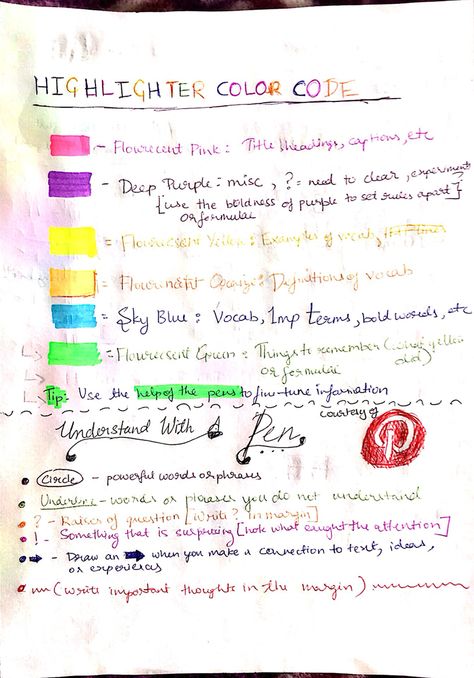 HIGHLIGHTER COLOR CODE
- Flourecent Pink: Title Headings, captions, etc
- Deep Purple: misc, ? = need to clear, experiments
[use the boldness of purple to set rules apart]
or formulae
= Flourescent Yellow: Examples of vocab,
= Flourescent Orange: Definitions of vocab
= Sky Blue: Vocab, Imp terms, bold words, etc
= Flourescent Green: Things to remember
or formulae
Tip: Use the help of the pens to fine-tune information
Understand With A Pen
courtesy of
Circle - powerful words or phrases
Underline - words or phrases you do not understand
? - Raises of question [Write ? in margin]
! - Something that is surprising [note what caught the attention]
→ - Draw an → when you make a connection to text, ideas,
or experiences
(Write important thoughts in the margin)